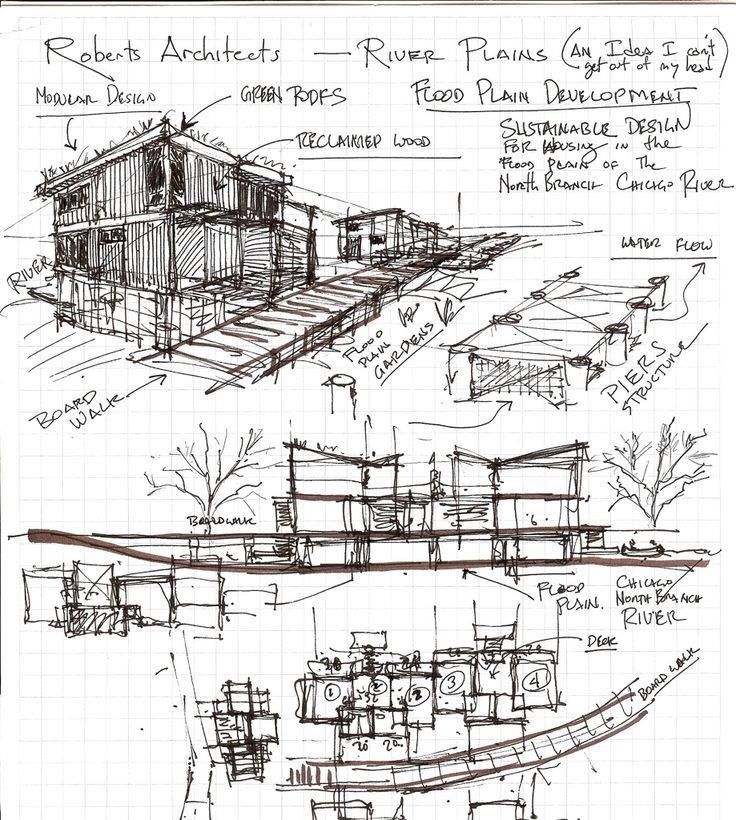 Roberts Architects — River Plains (An Idea I can't
get out of my head)
Modular Design
Green Roofs
Flood Plain Development
Reclaimed Wood
Sustainable Design
for housing in the
flood plain of the
North Branch Chicago River
Water Flow
River
Flood
Plain
Gardens
Piers
Structure
Board
Walk
Boardwalk
Flood
Plain.
Chicago
North Branch
River
Deck
20
20
1
2
2
3
4
Boardwalk
20
20